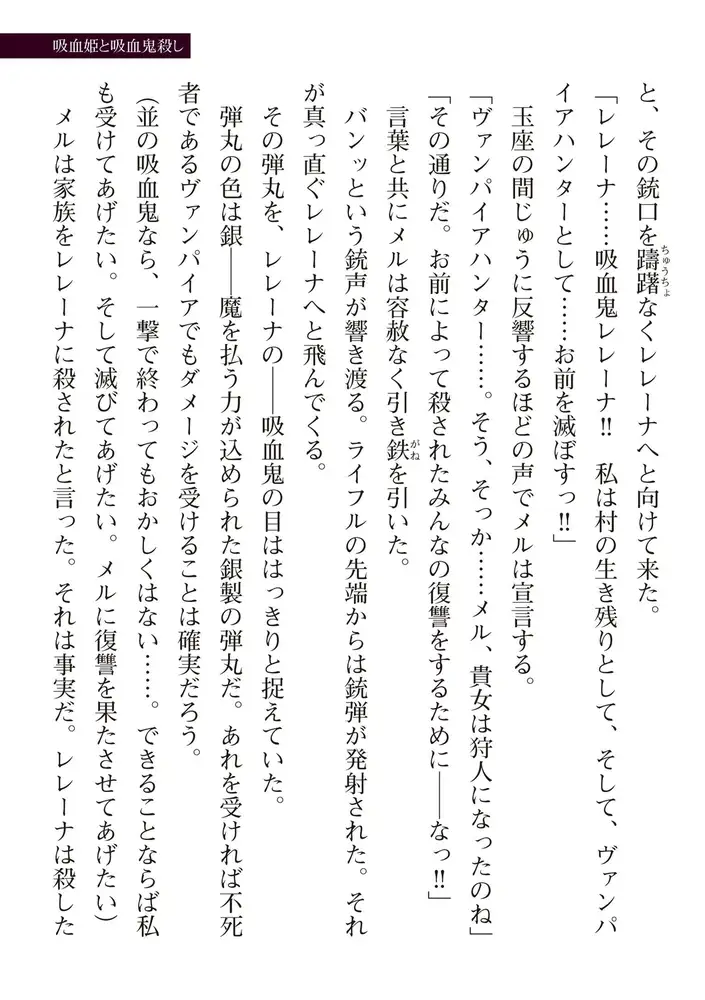 吸血姫と吸血鬼殺し
と、その銃口を躊躇なくレレーナへと向けて来た。
ちゅうちょ
「レレーナ……吸血鬼レレーナ‼　私は村の生き残りとして、そして、ヴァンパ
イアハンターとして……お前を滅ぼすっ‼」
玉座の間じゅうに反響するほどの声でメルは宣言する。
「ヴァンパイアハンター……。そう、そっか……メル、貴女は狩人になったのね」
「その通りだ。お前によって殺されたみんなの復讐をするために――なっ‼」
言葉と共にメルは容赦なく引き鉄を引いた。
がね
バンッという銃声が響き渡る。ライフルの先端からは銃弾が発射された。それ
が真っ直ぐレレーナへと飛んでくる。
その弾丸を、レレーナの――吸血鬼の目ははっきりと捉えていた。
弾丸の色は銀――魔を払う力が込められた銀製の弾丸だ。あれを受ければ不死
者であるヴァンパイアでもダメージを受けることは確実だろう。
（並の吸血鬼なら、一撃で終わってもおかしくはない……。できることならば私
も受けてあげたい。そして滅びてあげたい。メルに復讐を果たさせてあげたい）
メルは家族をレレーナに殺されたと言った。それは事実だ。レレーナは殺した